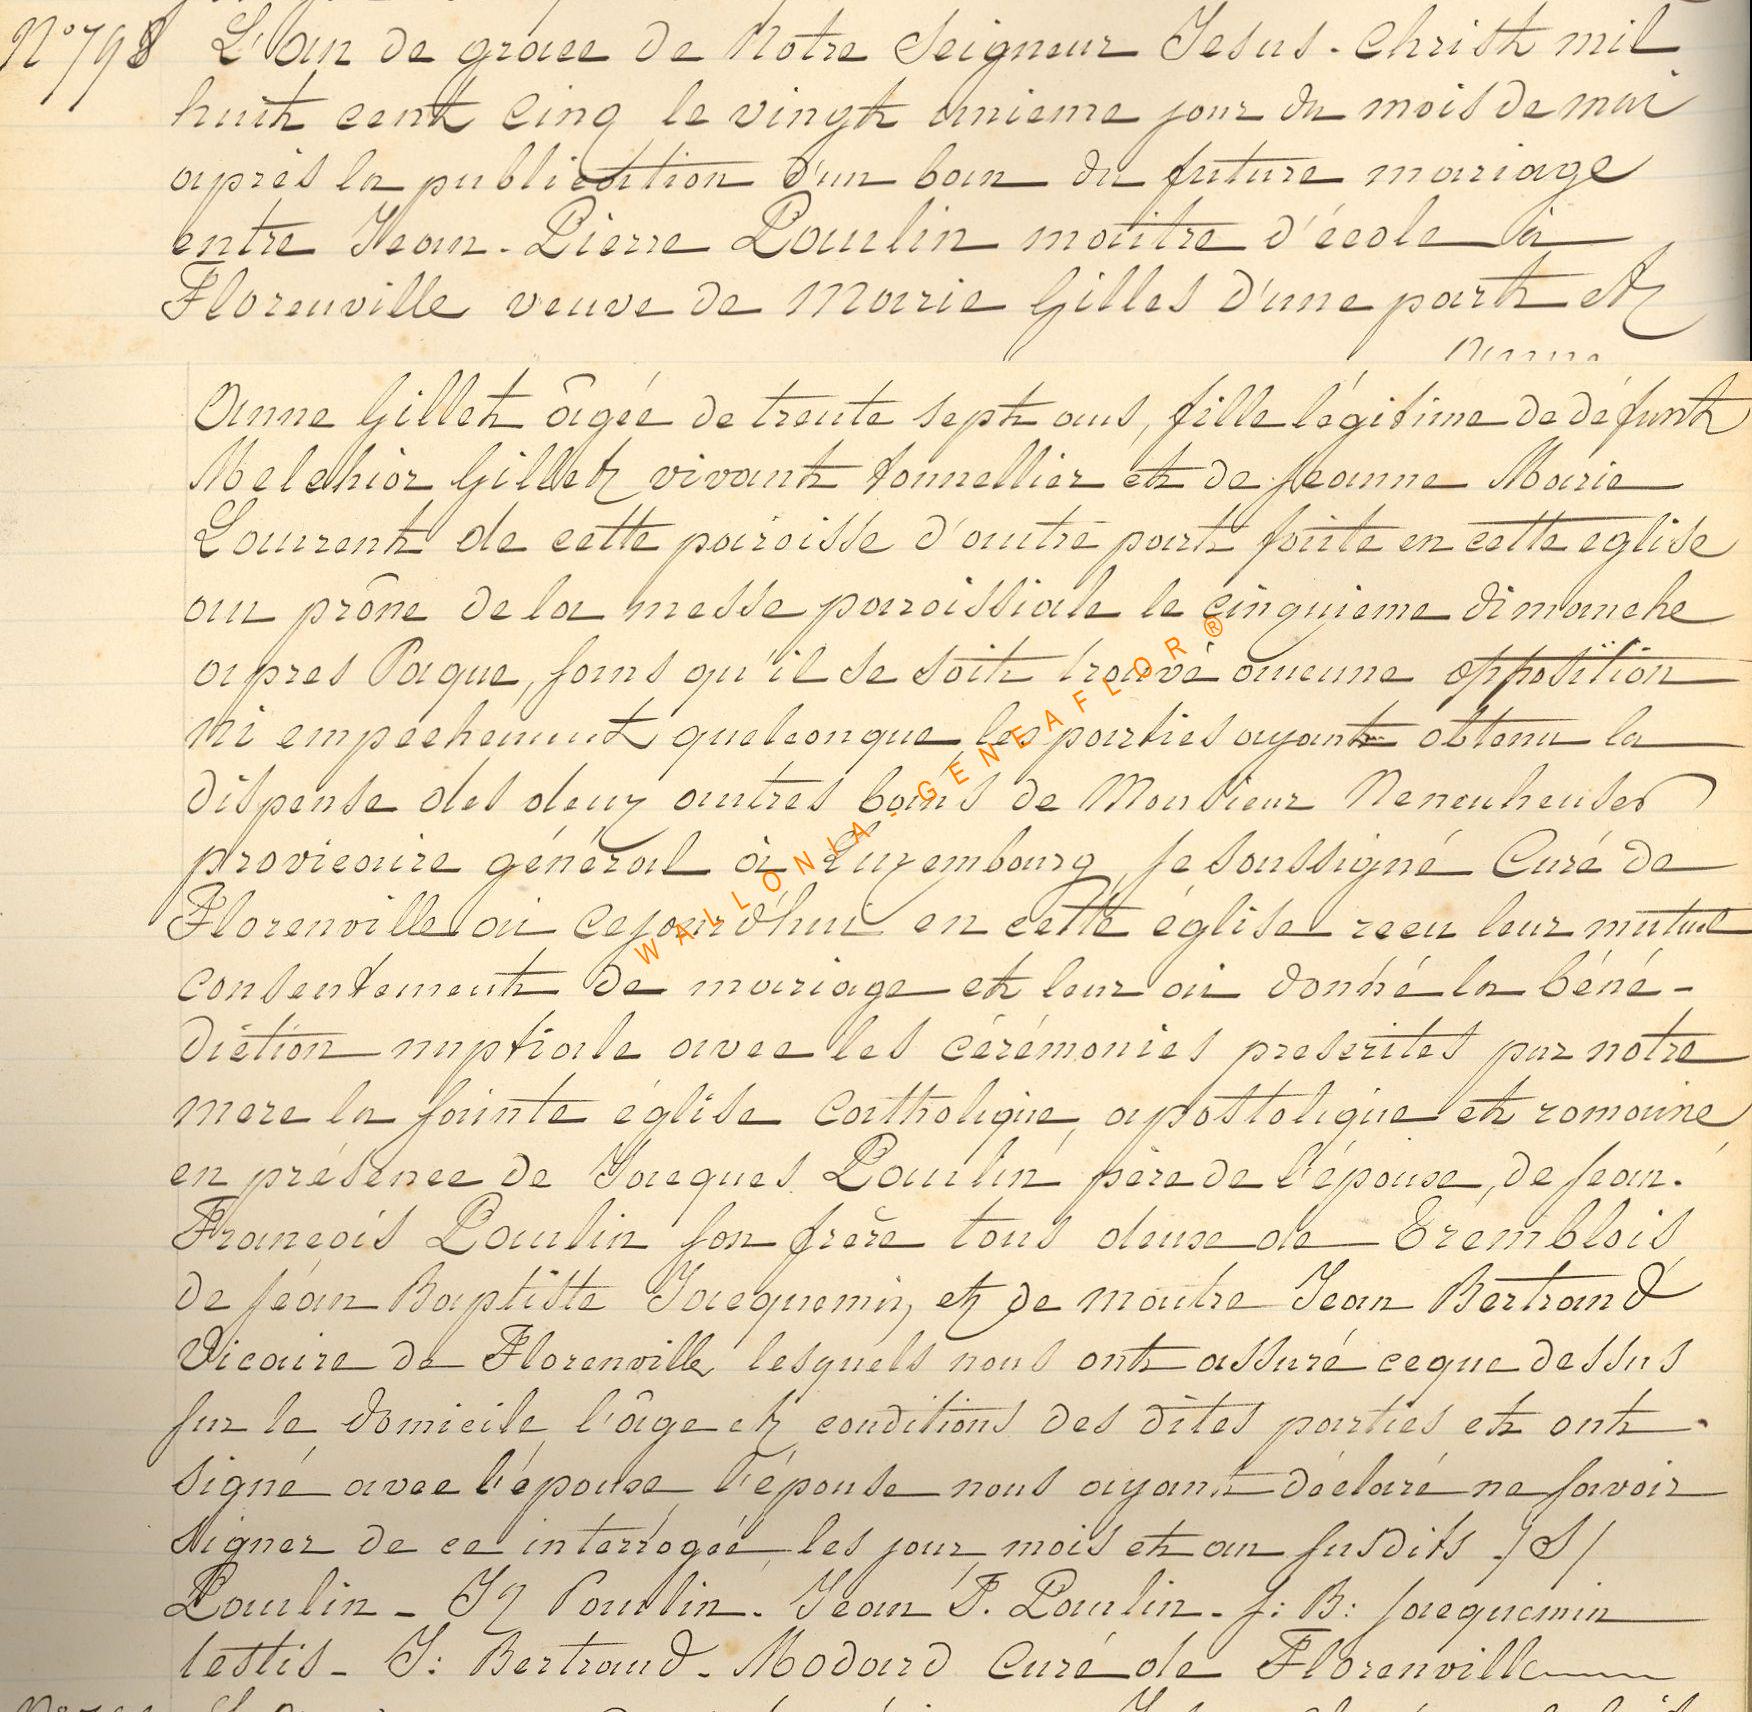 N° 798 L'an de grace de Notre Seigneur Jesus-Christ mil
huit cent cinq le vingt unieme jour du mois de mai
après la publication d'un ban du future mariage
entre Jean-Pierre Paulin maitre d'école à
Florenville veuve de Marie Gilles d'une part et
Anne
Anne Gillet âgée de trente sept ans, fille légitime de défunt
Melchior Gillet vivant tonnellier et de Jeanne Marie
Laurent de cette paroisse d'autre part faite en cette eglise
au prône de la messe paroissiale le cinquieme dimanche
apres Paque, sans qu'il se soit trouvé aucune opposition
ni empechement quelconque les parties ayant obtenu la
dispense des deux autres bans de Monsieur Neneuheuser
provicaire général à Luxembourg, je soussigné Curé de
Florenville ai cejourd'hui en cette église recu leur mutuel
consentement de mariage et leur ai donné la béné-
diction nuptiale avec les cérémonies prescrites par notre
mere la sainte église catholique, apostolique et romaine
en présence de Jacques Paulin père de l'épouse, de Jean-
Francois Paulin son frère tous deux de Tremblois
de Jean Baptiste Jacquemin, et de maitre Jean Bertrand
Vicaire de Florenville lesquels nous ont assuré ceque dessus
sur le domicile l'âge et conditions des dites parties et ont
signé avec l'épouse l'épouse nous ayant déclaré ne savoir
signer de ce interrogée les jour, mois et an susdits /S/
Paulin - JJ Paulin. Jean F. Paulin - J: B: Jacquemin
testis - J: Bertrand - Modard Curé de Florenville
WALLONIA-GENEAFLOR®